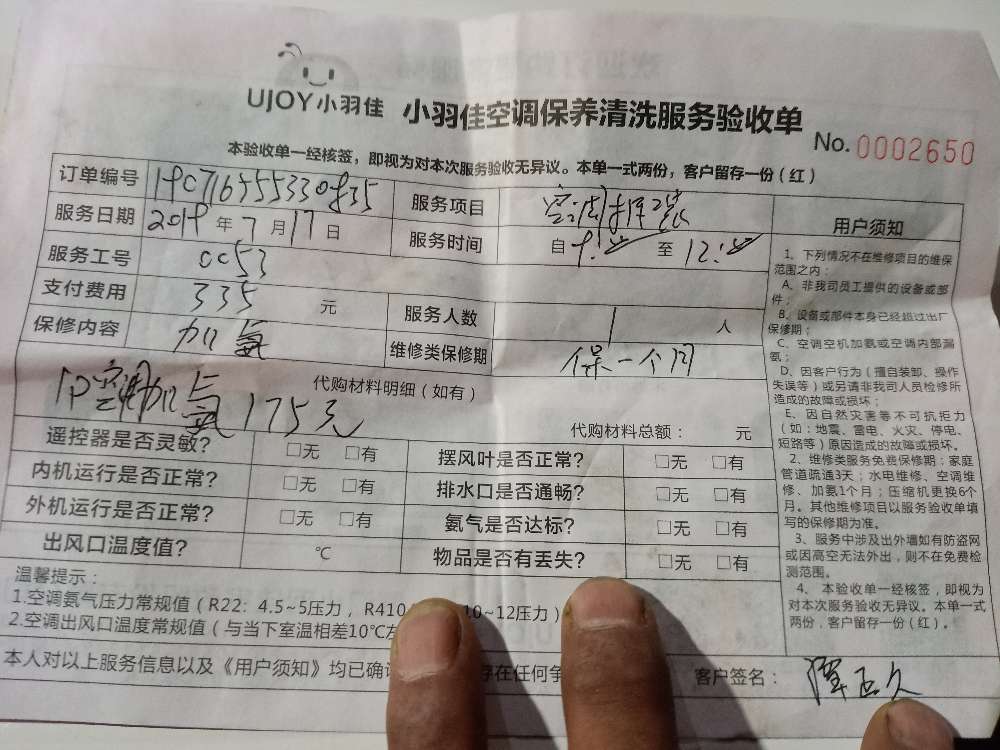 UJOY小羽佳 小羽佳空调保养清洗服务验收单
No. 0002650
本验收单一经核签，即视为对本次服务验收无异议。本单一式两份，客户留存一份（红）
订单编号 服务项目 空调拆装
服务日期 2019年7月17日 服务时间 自 至
服务工号 cc53
支付费用 335 元 服务人数 1 人
保修内容 加氨 维修类保修期 保一个月
代购材料明细（如有）
1P空调加氨175元
代购材料总额： 元
遥控器是否灵敏？ □无 □有 摆风叶是否正常？ □无 □有
内机运行是否正常？ □无 □有 排水口是否通畅？ □无 □有
外机运行是否正常？ □无 □有 氨气是否达标？ □无 □有
出风口温度值？ ℃ 物品是否有丢失？ □无 □有
用户须知
1、下列情况不在维修项目的维保
范围之内：
A、非我司员工提供的设备或部
件；
B、设备或部件本身已经超过出厂
保修期；
C、空调空机加氨或空调内部漏
氨；
D、因客户行为（擅自装卸、操作
失误等）或另请非我司人员检修所
造成的故障或损坏；
E、因自然灾害等不可抗拒力
（如：地震、雷电、火灾、停电、
短路等）原因造成的故障或损坏。
2、维修类服务免费保修期：家庭
管道疏通3天；水电维修、空调维
修、加氨1个月；压缩机更换6个
月。其他维修项目以服务验收单填
写的保修期为准。
3、服务中涉及出外墙如有防盗网
或因高空无法外出，则不在免费检
测范围。
4、本验收单一经核签，即视为
对本次服务验收无异议。本单一式
两份，客户留存一份（红）。
温馨提示：
1.空调氨气压力常规值（R22：4.5~5压力，R410 10~12压力）
2.空调出风口温度常规值（与当下室温相差10℃左
本人对以上服务信息以及《用户须知》均已确 存在任何争
客户签名：